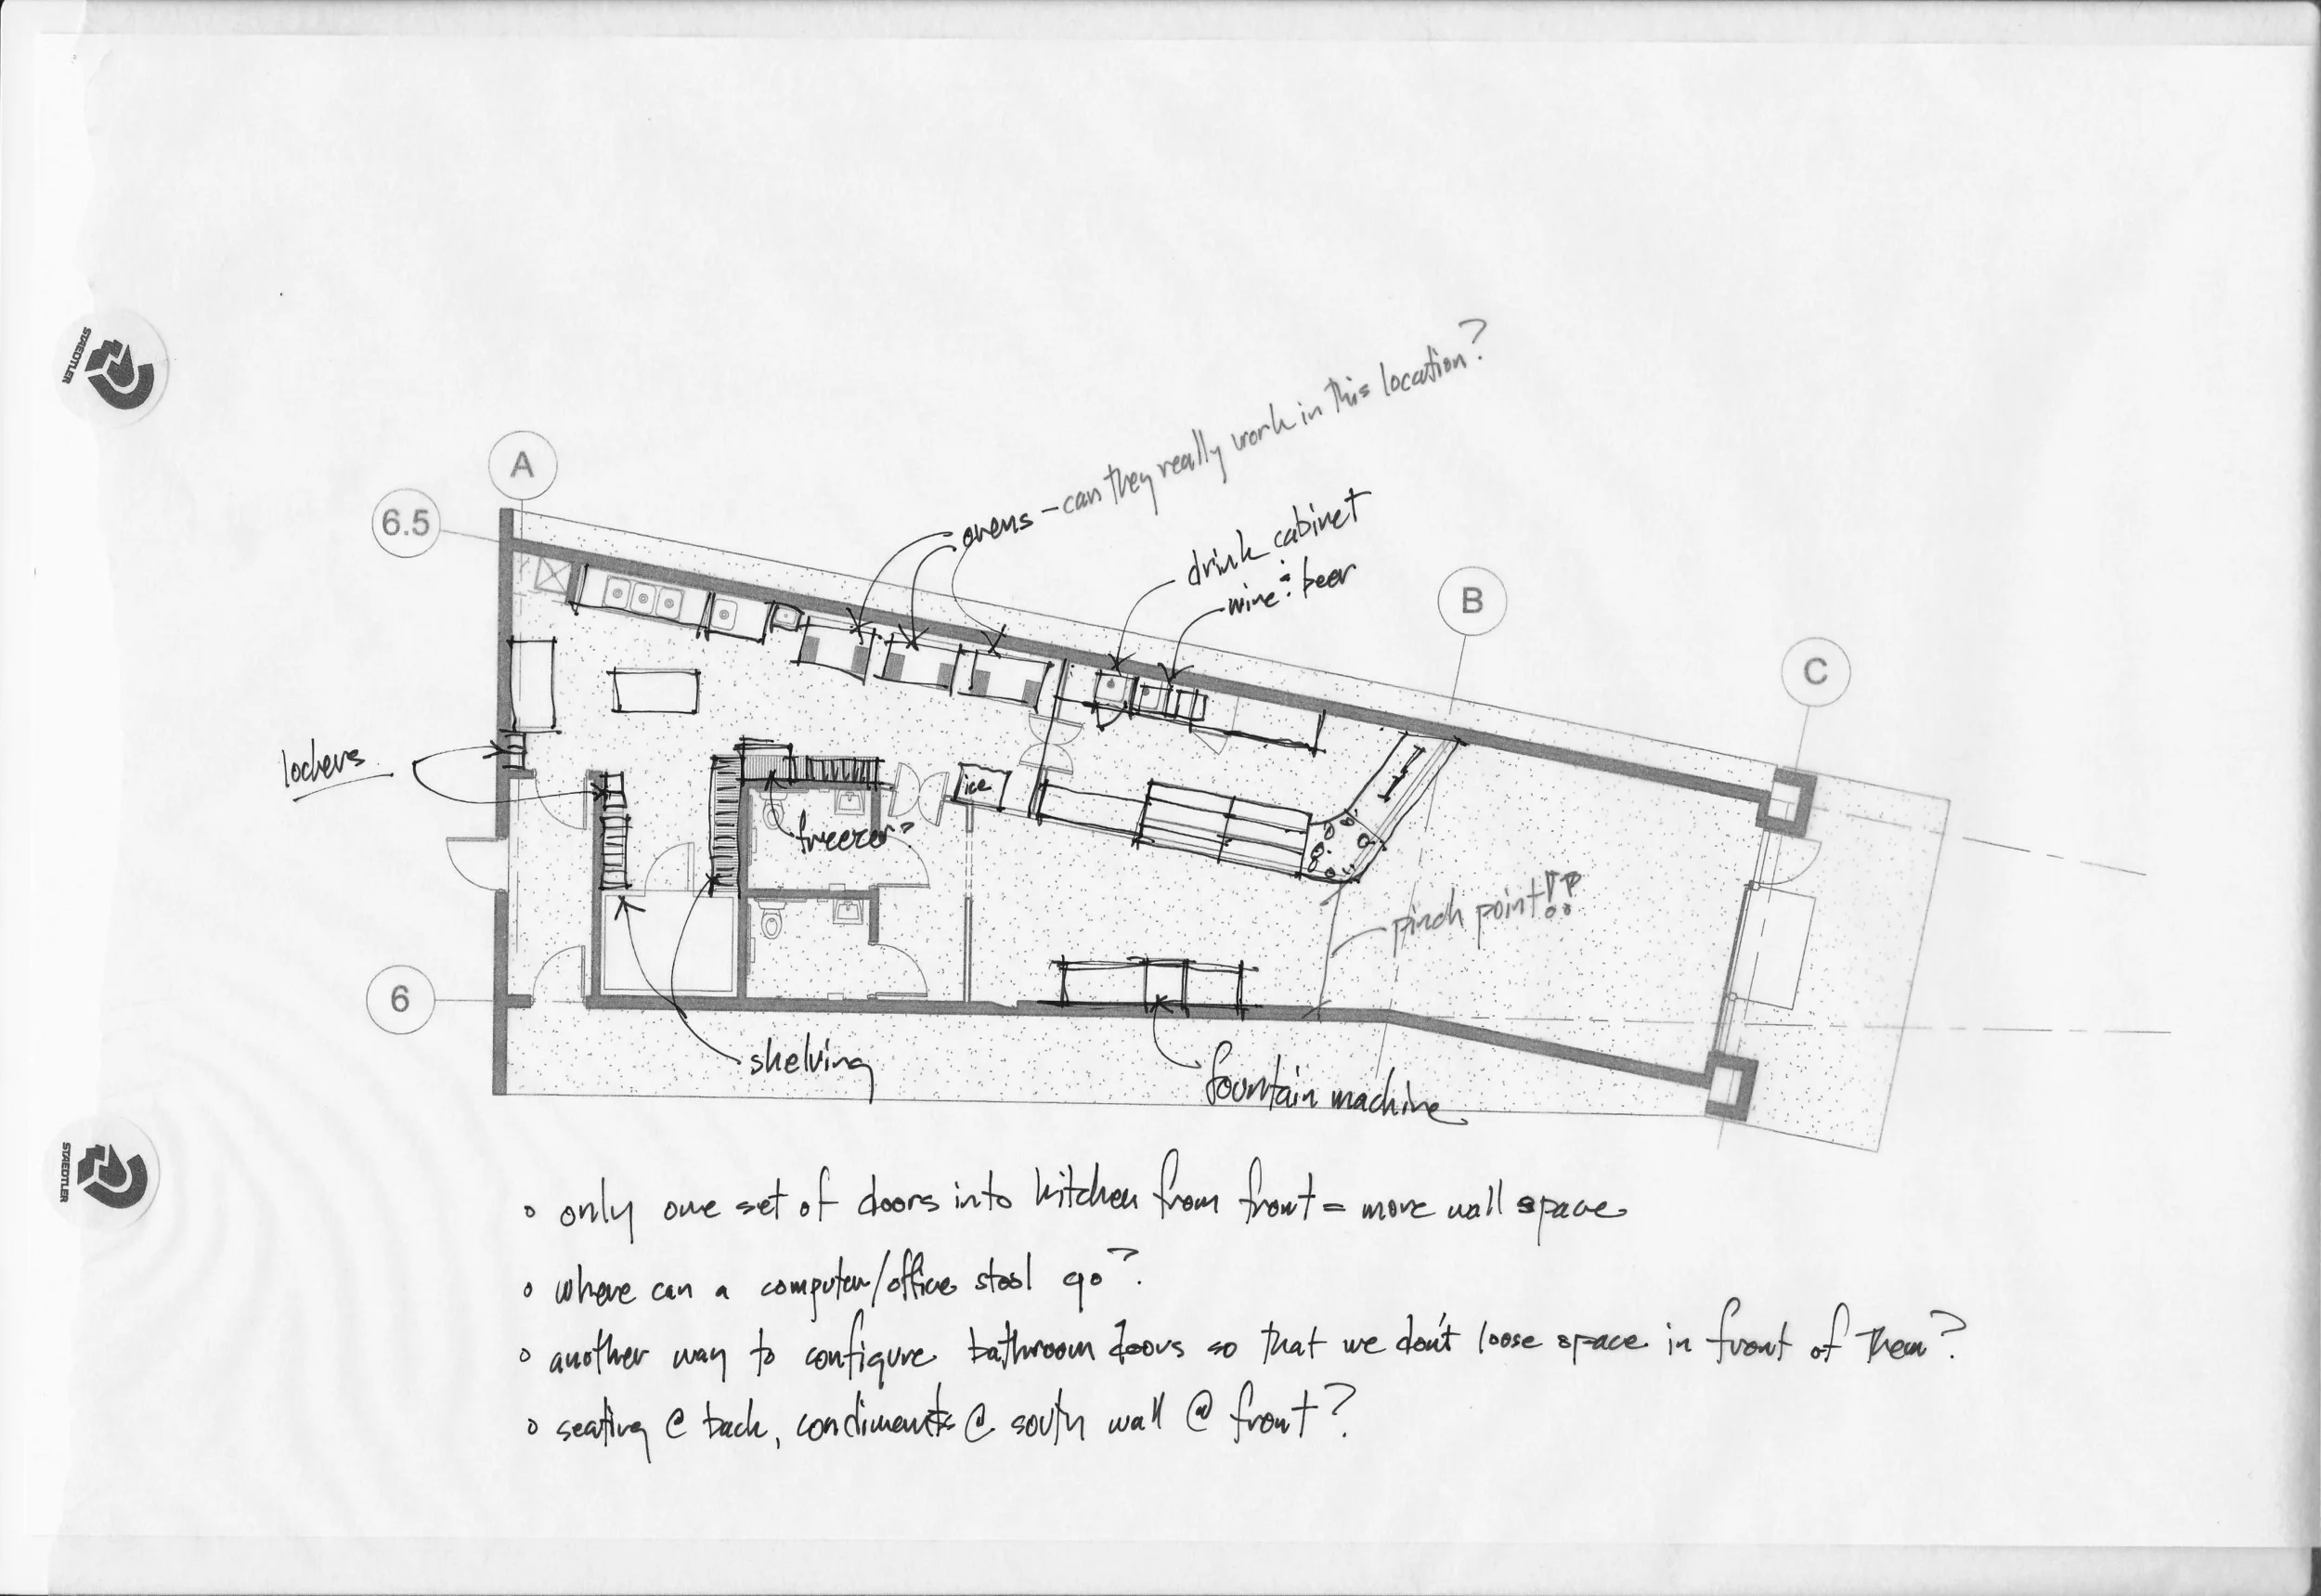 ovens - can they really work in this location?
drink cabinet
wine & beer
A
6.5
B
C
lockers
ice
freezer?
pinch point!?
6
shelving
fountain machine
STAEDTLER
STAEDTLER
o only one set of doors into kitchen from front = more wall space
o where can a computer/office stool go?
o another way to configure bathroom doors so that we don't loose space in front of them?
o seating @ back, condiments @ south wall @ front?